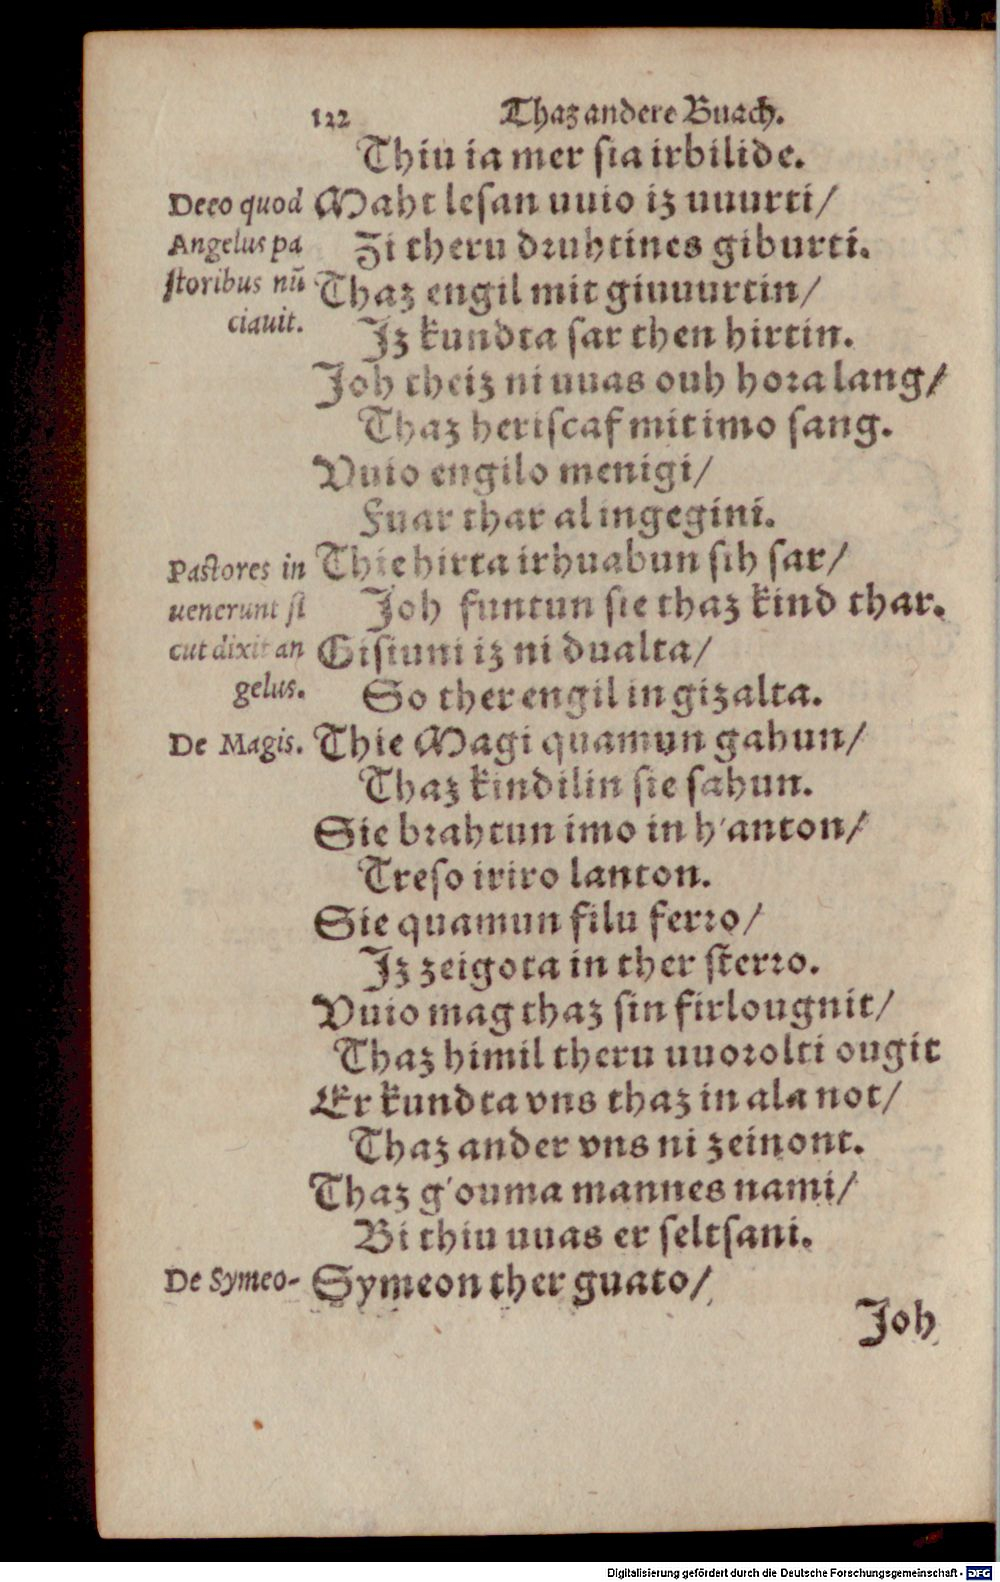 122 Thaz andere Buach.
Thiu ia mer sia irbilide.
De eo quod
Angelus pa
ſtoribus nũ
ciauit.
Maht leſan uuio iz uuurti/
Zi theru druhtines giburti.
Thaz engil mit giuuurtin/
Iz kundta ſar then hirtin.
Joh theiz ni uuas ouh hora lang/
Thaz heriſcaf mit imo ſang.
Vuio engilo menigi/
Fuar thar al ingegini.
Pastores in
uenerunt ſi
cut dixit an
gelus.
Thie hirta irhuabun ſih ſar/
Joh funtun ſie thaz kind thar.
Giſiuni iz ni dualta/
So ther engil in gizalta.
De Magis.
Thie Magi quamun gahun/
Thaz kindilin ſie ſahun.
Sie brahtun imo in h'anton/
Treſo iriro lanton.
Sie quamun filu ferro/
Iz zeigota in ther ſterro.
Vuio mag thaz ſin firlougnit/
Thaz himil theru uuorolti ougit
Er kundta vns thaz in ala not/
Thaz ander vns ni zeinont.
Thaz g'ouma mannes nami/
Bi thiu uuas er ſeltſani.
De Symeo-
Symeon ther guato/
Joh
Digitalisierung gefördert durch die Deutsche Forschungsgemeinschaft - DFG